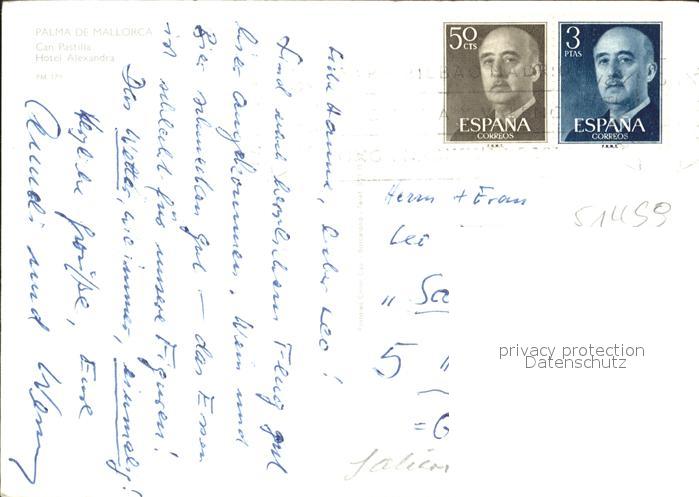 PALMA DE MALLORCA
Can Pastilla
Hotel Alexandra
PM 179
Liebe Hanne, lieber Leo!
Sind nach herrlichem Flug gut
hier angekommen. Wein und
Bier schmecken gut – das Essen
ist schlecht für unsere Figuren!
Das Wetter, wie immer, einmalig!
Herzliche Grüße, Eure
und
50
CTS
ESPAÑA
CORREOS
F.N.M.T.
3
PTAS
ESPAÑA
CORREOS
F.N.M.T.
BILBAO MADRID
Herrn + Frau
Leo
" Sa
5 "
= G
51459
privacy protection
Datenschutz